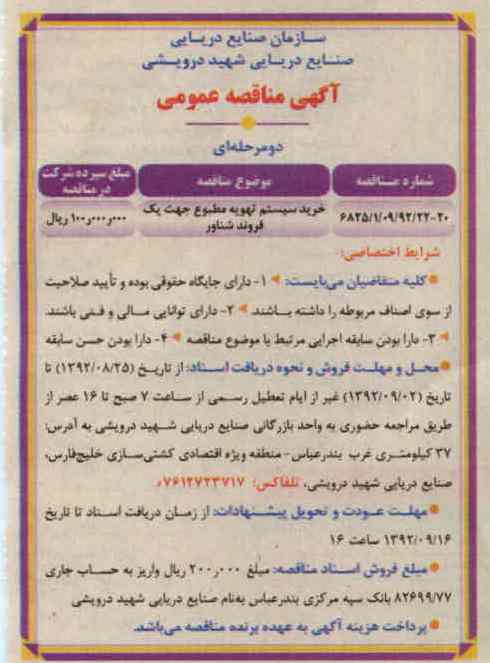 سازمان صنایع دریایی
صنایع دریایی شهید درویشی
آگهی مناقصه عمومی
دومرحله‌ای
شماره مناقصه موضوع مناقصه مبلغ سپرده شرکت در مناقصه
۶۸۲۵/۱/۰۹/۹۲/۲۲-۲۰ خرید سیستم تهویه مطبوع جهت یک فروند شناور ۱۰۰٫۰۰۰٫۰۰۰ ریال
شرایط اختصاصی:
کلیه متقاضیان می‌بایست: ۱- دارای جایگاه حقوقی بوده و تأیید صلاحیت
از سوی اصناف مربوطه را داشته باشند. ۲- دارای توانایی مالی و فنی باشند.
۳- دارا بودن سابقه اجرایی مرتبط با موضوع مناقصه ۴- دارا بودن حسن سابقه
محل و مهلت فروش و نحوه دریافت اسناد: از تاریخ (۱۳۹۲/۰۸/۲۵) تا
تاریخ (۱۳۹۲/۰۹/۰۲) غیر از ایام تعطیل رسمی از ساعت ۷ صبح تا ۱۶ عصر از
طریق مراجعه حضوری به واحد بازرگانی صنایع دریایی شهید درویشی به آدرس:
۳۷ کیلومتری غرب بندرعباس - منطقه ویژه اقتصادی کشتی‌سازی خلیج‌فارس،
صنایع دریایی شهید درویشی، تلفاکس: ۰۷۶۱۲۷۲۳۷۱۷
مهلت عودت و تحویل پیشنهادات: از زمان دریافت اسناد تا تاریخ
۱۳۹۲/۰۹/۱۶ ساعت ۱۶
مبلغ فروش اسناد مناقصه: مبلغ ۲۰۰٫۰۰۰ ریال واریز به حساب جاری
۸۲۶۹۹/۷۷ بانک سپه مرکزی بندرعباس به‌نام صنایع دریایی شهید درویشی
پرداخت هزینه آگهی به عهده برنده مناقصه می‌باشد.